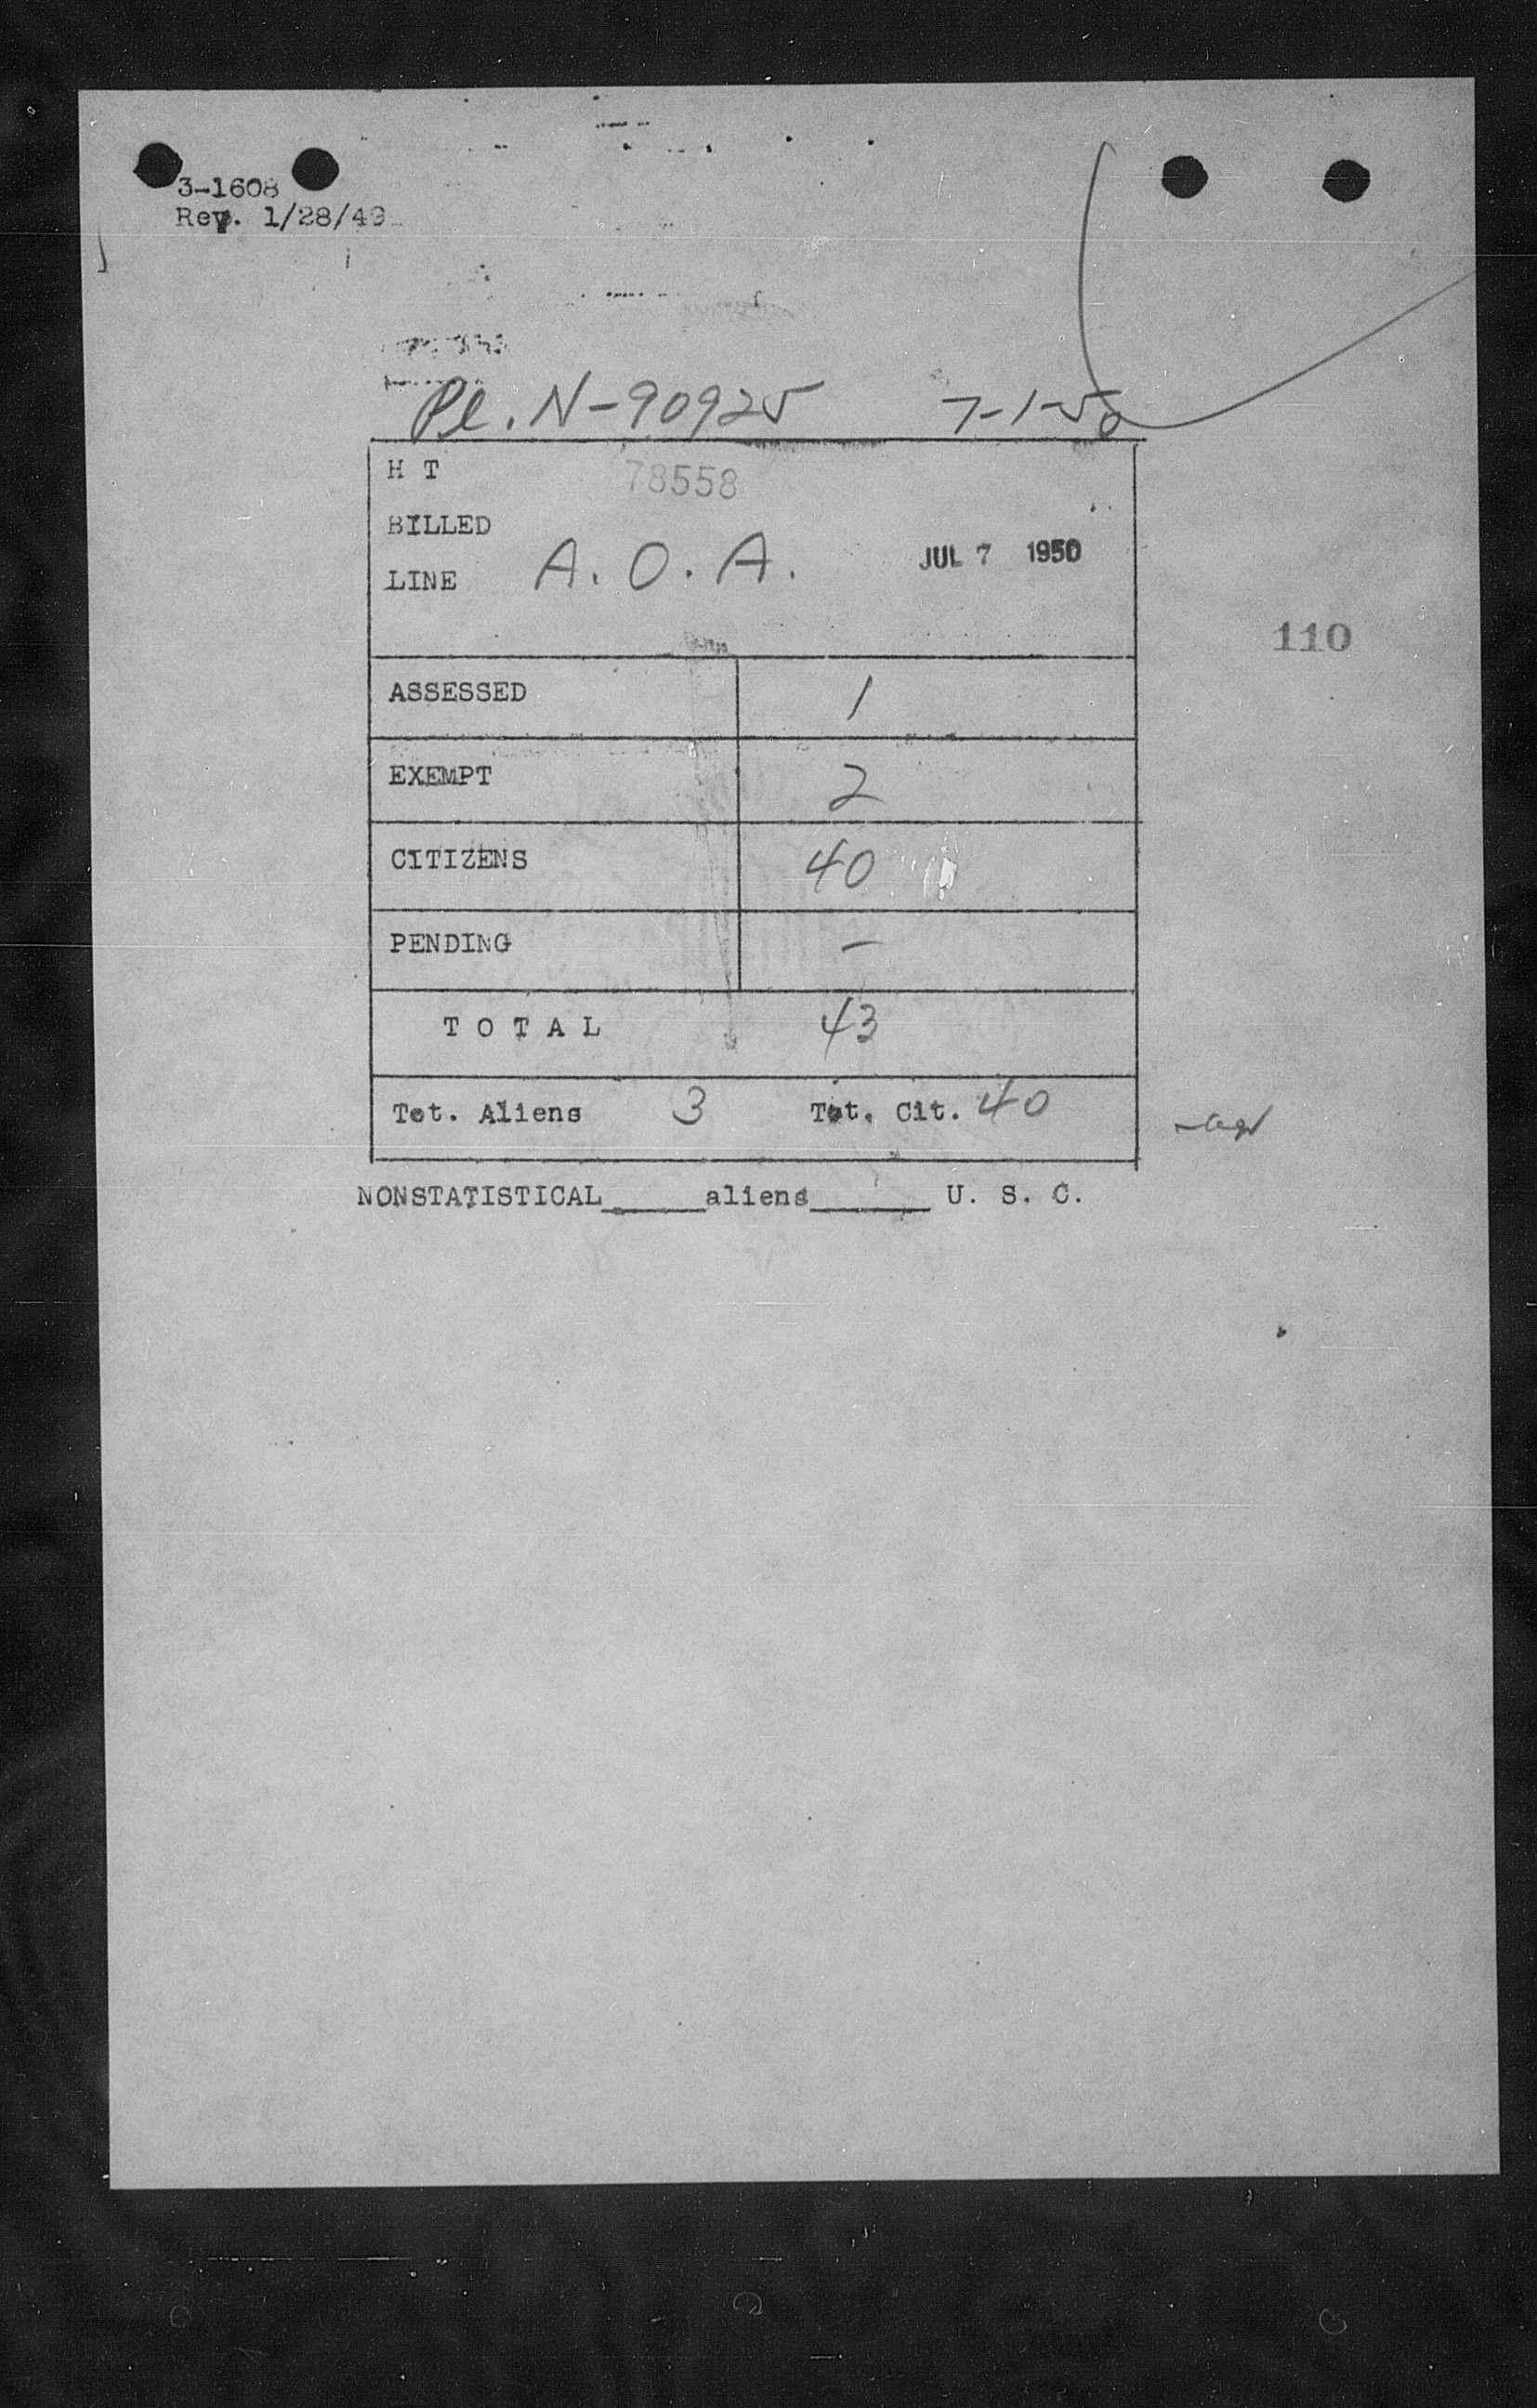 3-1608
Rev. 1/28/49
Pl. N-90925 7-1-50
H T 78558
BILLED
LINE A. O. A. JUL 7 1950
110
ASSESSED 1
EXEMPT 2
CITIZENS 40
PENDING -
T O T A L 43
Tot. Aliens 3 Tot. Cit. 40
NONSTATISTICAL_____aliens______ U. S. C.